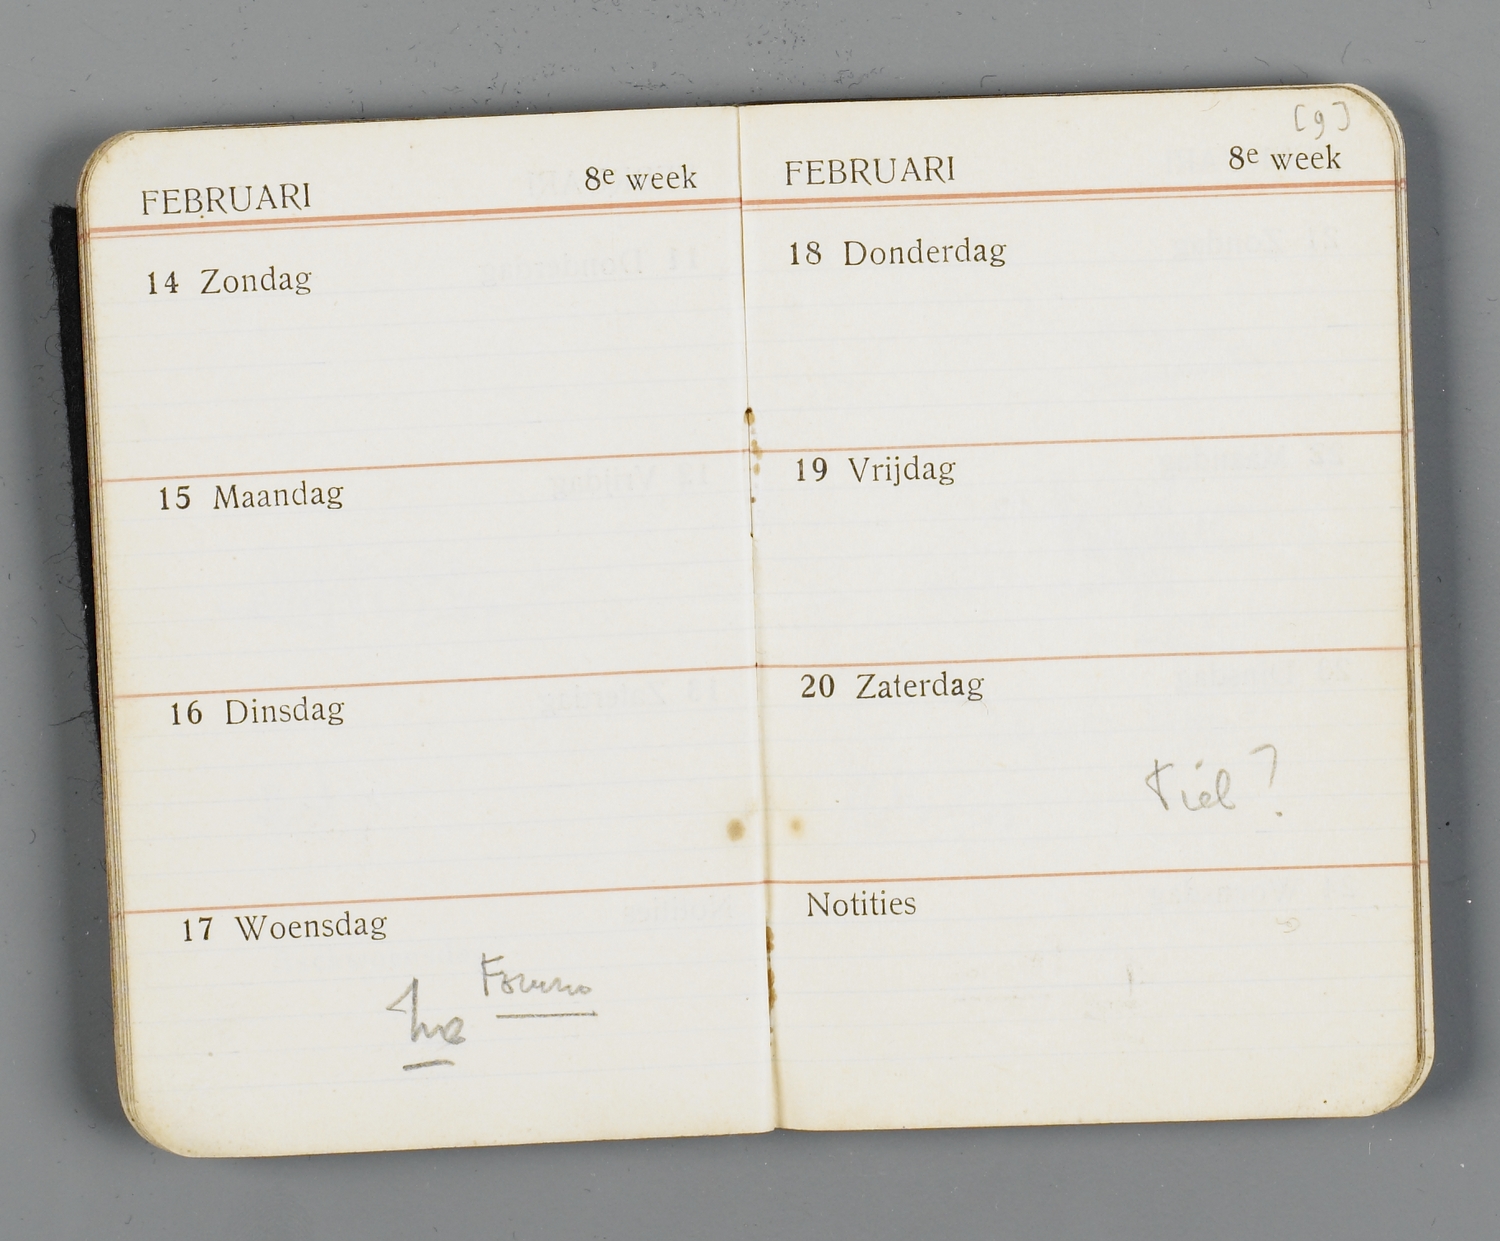 FEBRUARI 8e week
14 Zondag
15 Maandag
16 Dinsdag
17 Woensdag
[9]
FEBRUARI 8e week
18 Donderdag
19 Vrijdag
20 Zaterdag
Tiel?
Notities